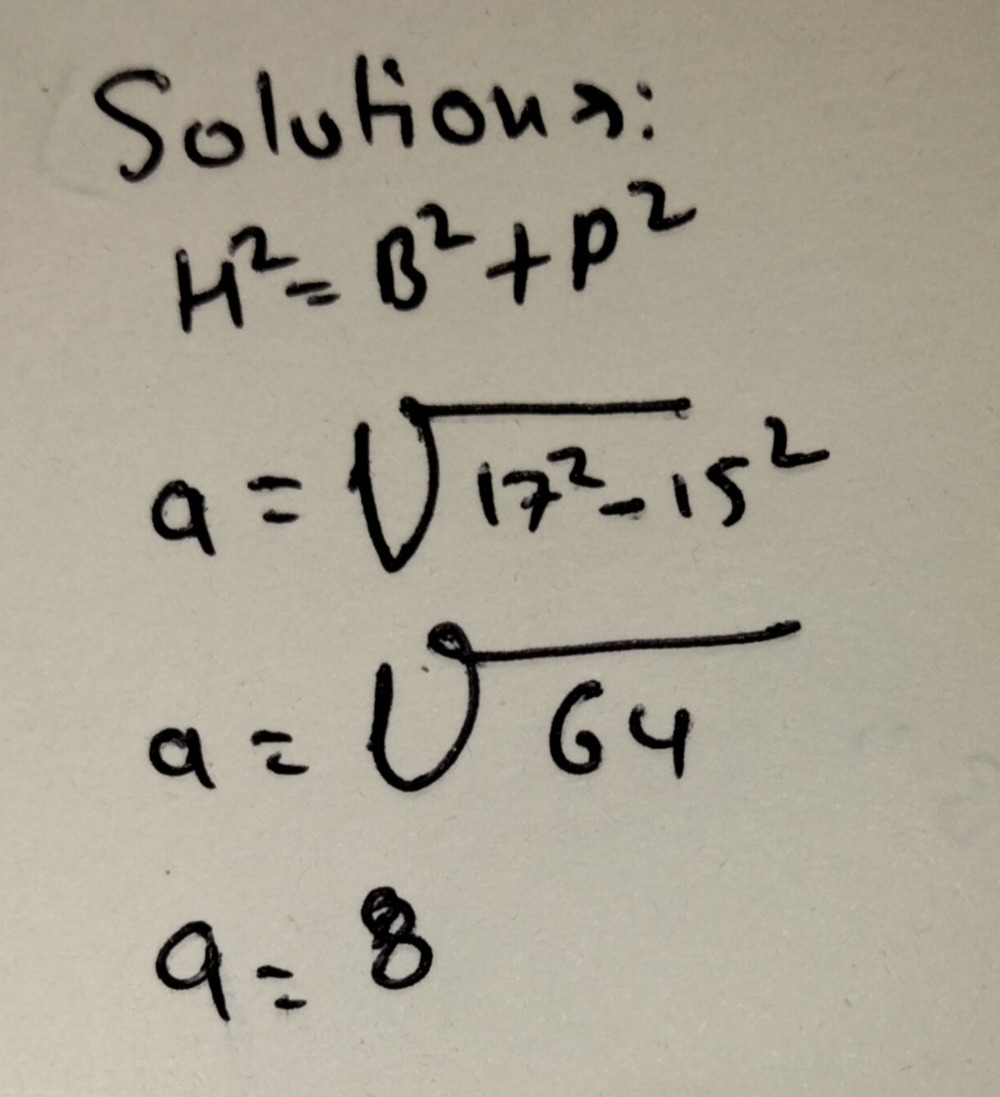 Solution:
H² = B² + P²
a = √17² - 15²
a = √64
a = 8